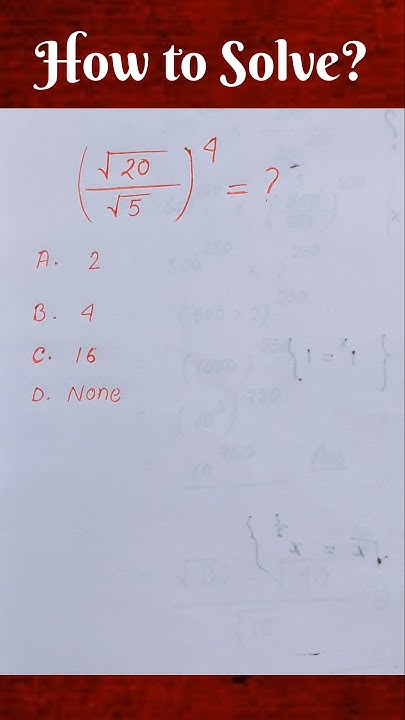 How to Solve?
(√20/√5)^4 = ?
A. 2
B. 4
C. 16
D. None